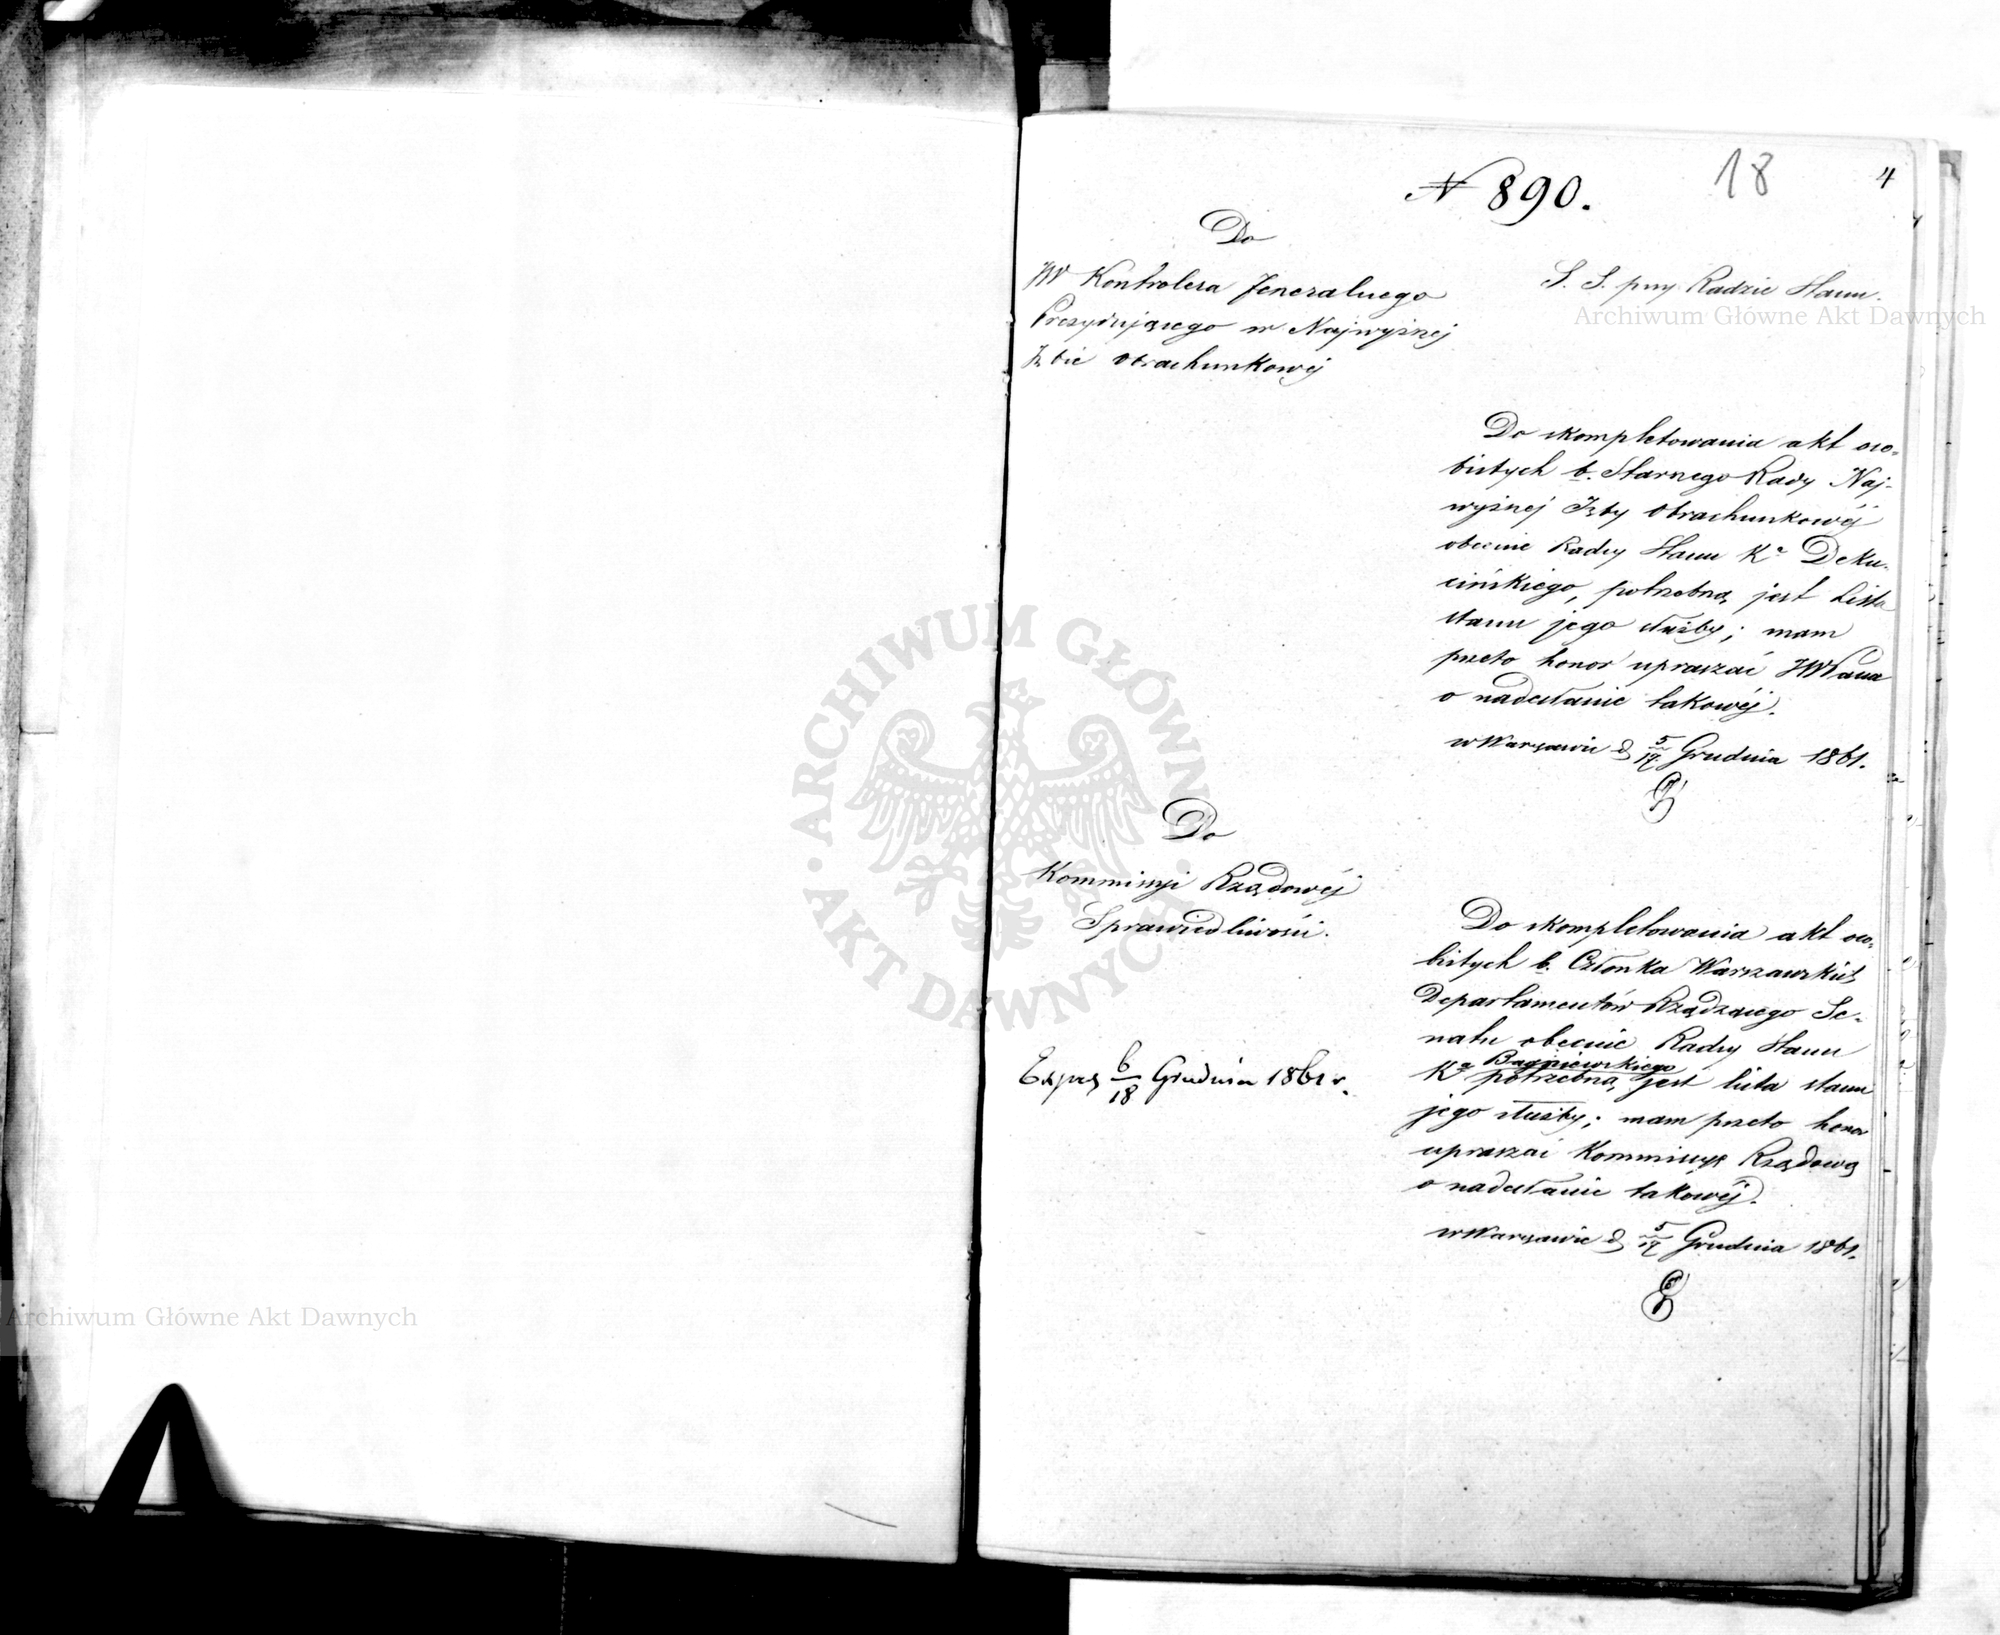 N 890.
18
4
Do
JW Kontrolera Jeneralnego
Prezydującego w Najwyższej
Izbie Obrachunkowéj
S. S. przy Radzie Stanu.
Archiwum Główne Akt Dawnych
Do skompletowania akt oso-
bistych b. Starszego Rady Naj-
wyższej Izby Obrachunkowéj
obecnie Radcy Stanu Ko Deku-
cińskiego, potrzebną jest Lista
stanu jego służby; mam
przeto honor upraszać JWPana
o nadesłanie takowéj.
w Warszawie d 5/17 Grudnia 1861.
Do
Kommissyi Rządowéj
Sprawiedliwości.
Do skompletowania akt oso-
bistych b. Członka Warszawskich
Departamentów Rządzącego Se-
natu obecnie Radcy Stanu
Ko Bagniewskiego
potrzebną jest lista stanu
jego służby; mam przeto honor
upraszać Kommissyą Rządową
o nadesłanie takowéj.
w Warszawie d 5/17 Grudnia 1861.
6/18 Grudnia 1861 r.
ARCHIWUM GŁÓWNE AKT DAWNYCH
Archiwum Główne Akt Dawnych